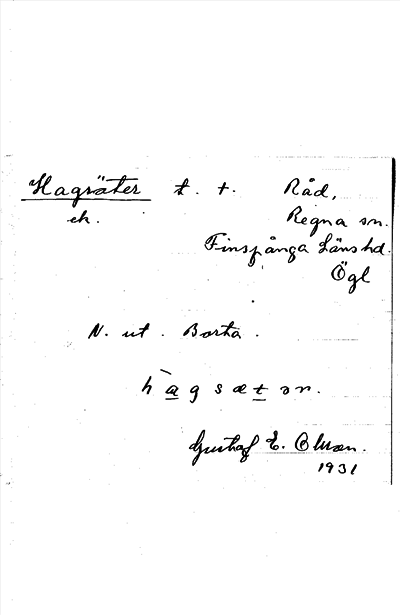 Hagsäter t. t. Råd,
ek. Regna sn.
Finspånga länshd.
Ögl
N. ut. Borta.
hàgsætər.
Gustaf E. Olson.
1931